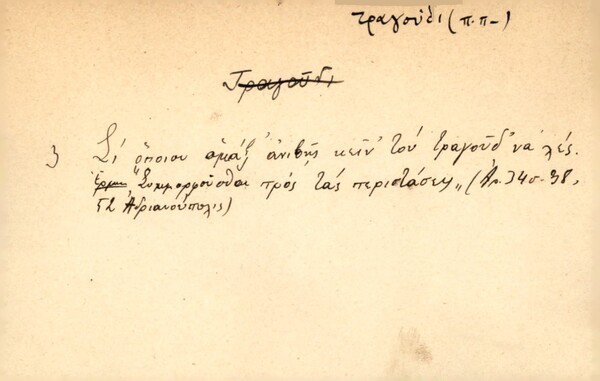 τραγούδι (π.π–)
Τραγοῦδι
3 Σ' ὅποιου ἁμάξ' ἀνιβῆς κεῖν' τοὺ τραγοῦδ' νὰ λές.
Ἑρμ. "Συμμορφοῦσθαι πρὸς τὰς περιστάσεις" (Ἀρ. 34 σ. 38,
52 Ἀδριανούπολις)